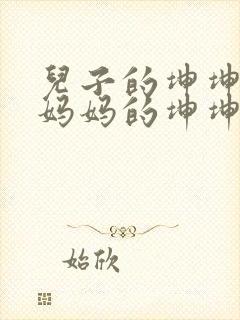 兒子的坤坤
妈妈的坤坤
始欣